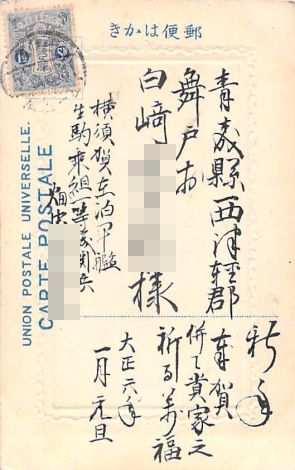 郵便はかき
UNION POSTALE UNIVERSELLE.
CARTE POSTALE
青森縣西津輕郡
舞戸村
白崎
様
横須賀在泊軍艦
生駒乗組一等機関兵
畑中
新年
奉賀
併て貴家之
祈る万福
大正六年
一月元旦